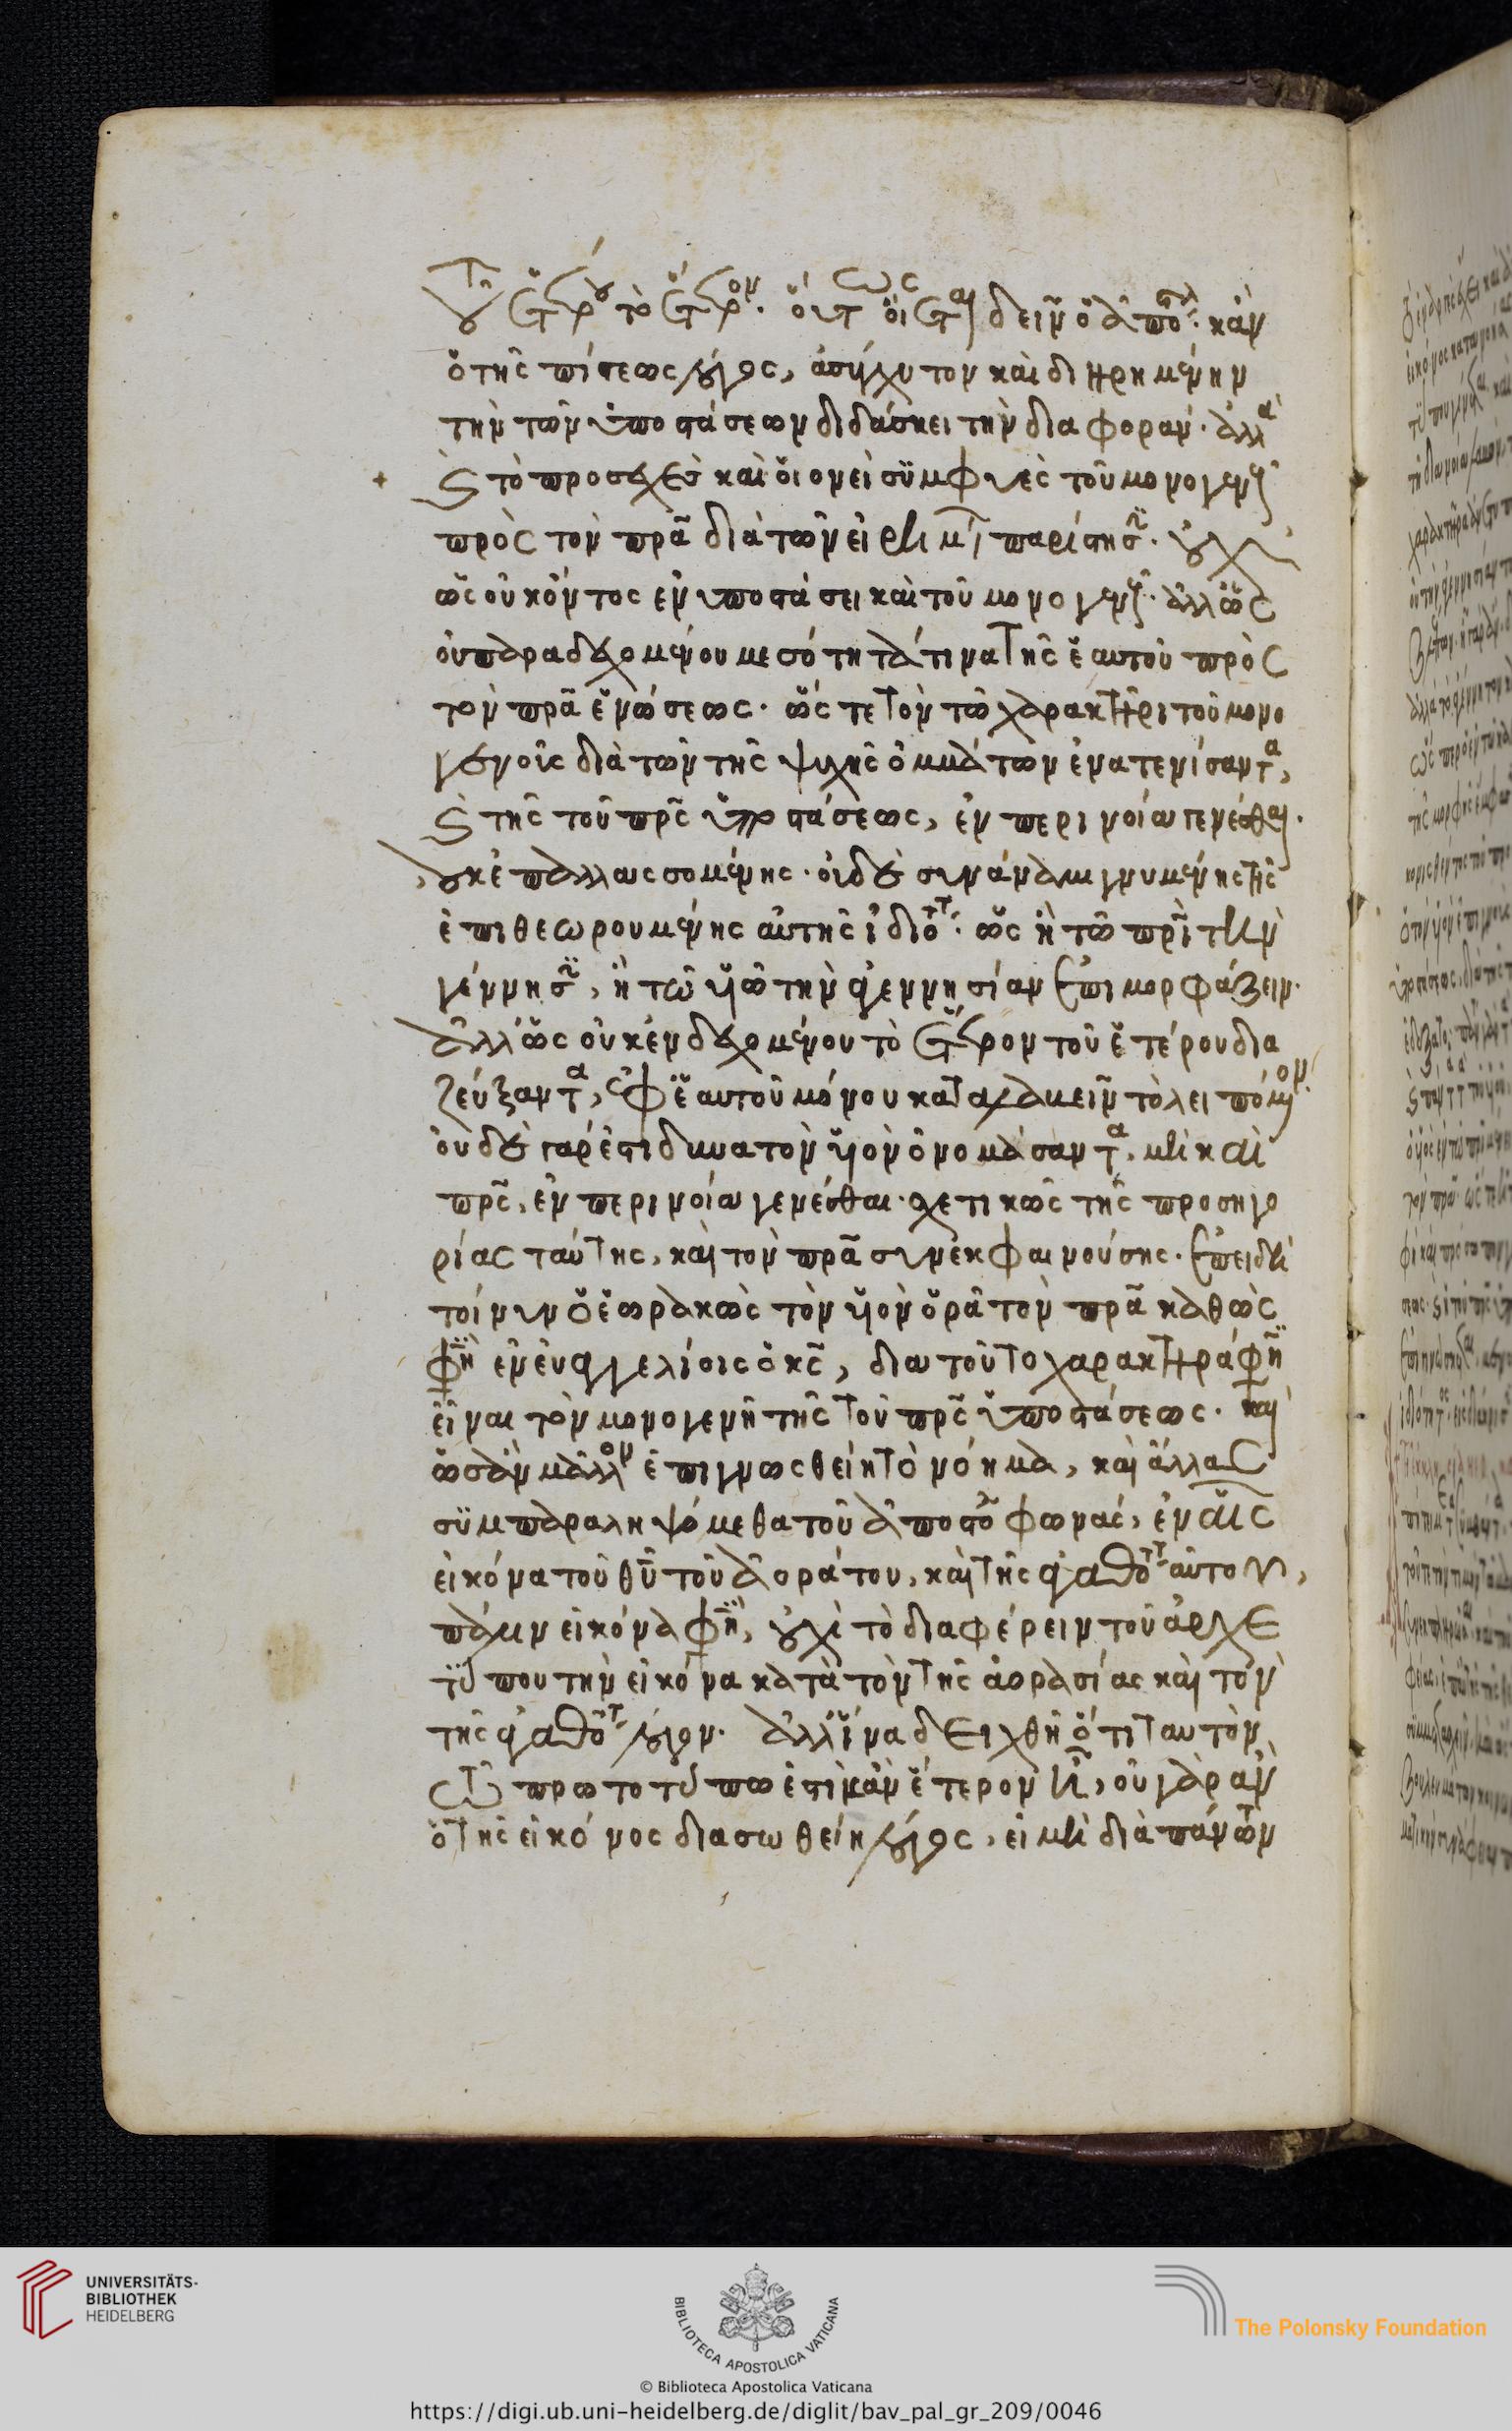 τοῦ ἑτέρου τὸ ἕτερον. οὕτως οἴεται δεῖν ὁ ἀπόστολος. κἂν
ὁ τῆς πίστεως λόγος, ἀσύγχυτον καὶ διῃρημένην
τὴν τῶν ὑποστάσεων διδάσκει τὴν διαφοράν. ἀλλὰ
καὶ τὸ προσεχὲς καὶ οἱονεὶ συμφυὲς τοῦ μονογενοῦς
πρὸς τὸν πρα διὰ τῶν εἰρημένων παρίστησιν. οὐχ
ὡς οὐκ ὄντος ἐν ὑποστάσει καὶ τοῦ μονογενοῦς. ἀλλ' ὡς
οὐ παραδεχομένου μεσότητά τινα τῆς ἑαυτοῦ πρὸς
τὸν πρα ἑνώσεως. ὥς τε τὸν τῶ χαρακτῆρι τοῦ μονο
γενοῦς διὰ τῶν τῆς ψυχῆς ὀμμάτων ἐνατενίσαντα,
καὶ τῆς τοῦ πρς ὑποστάσεως, ἐν περινοία γενέσθαι.
οὐκ ἐπαλλασσομένης. οὐδὲ συναναμιγνυμένης τῆς
ἐπιθεωρουμένης αὐτῆς ἰδιότητος. ὡς ἢ τῶ πρι τὴν
γέννησιν, ἢ τῶ υἱῶ τὴν ἀγεννησίαν ἐπιμορφάζειν.
ἀλλ' ὡς οὐκ ἐνδεχομένου τὸ ἕτερον τοῦ ἑτέρου δια
ζεύξαντα, ἐφ' ἑαυτοῦ μόνου καταλαβεῖν τὸ λειπόμενον.
οὐδὲ γάρ ἐστι δυνατὸν υἱὸν ὀνομάσαντα, μὴ καὶ
πρς, ἐν περινοία γενέσθαι. σχετικῶς τῆς προσηγο
ρίας ταύτης, καὶ τὸν πρα συνεκφαινούσης. ἐπειδὴ
τοίνυν ὁ ἑωρακὼς τὸν υἱὸν ὁρᾶ τὸν πρα καθὼς
φησὶν ἐν εὐαγγελίοις ὁ κς, διὰ τοῦτο χαρακτῆρά φησιν
εἶναι τὸν μονογενῆ τῆς τοῦ πρς ὑποστάσεως. καὶ
ὡς ἂν μᾶλλον ἐπιγνωσθείη τὸ νόημα, καὶ ἄλλας
συμπαραληψόμεθα τοῦ ἀποστόλου φωνάς, ἐν αἷς
εἰκόνα τοῦ θυ τοῦ ἀοράτου, καὶ τῆς ἀγαθότητος αὐτοῦ,
πάλιν εἰκόνα φησὶν, οὐχὶ τὸ διαφέρειν τοῦ ἀρχε
τύπου τὴν εἰκόνα κατὰ τὸν τῆς ἀορασίας καὶ τὸν
τῆς ἀγαθότητος λόγον. ἀλλ' ἵνα δειχθῆ ὅτι ταυτὸν
τῶ πρωτοτύπω ἐστὶ κἂν ἕτερον ἦ, οὐ γὰρ ἂν
ὁ τῆς εἰκόνος διασωθείη λόγος, εἰ μὴ διὰ πάντων
UNIVERSITÄTS-
BIBLIOTHEK
HEIDELBERG
BIBLIOTECA APOSTOLICA VATICANA
The Polonsky Foundation
© Biblioteca Apostolica Vaticana
https://digi.ub.uni-heidelberg.de/diglit/bav_pal_gr_209/0046